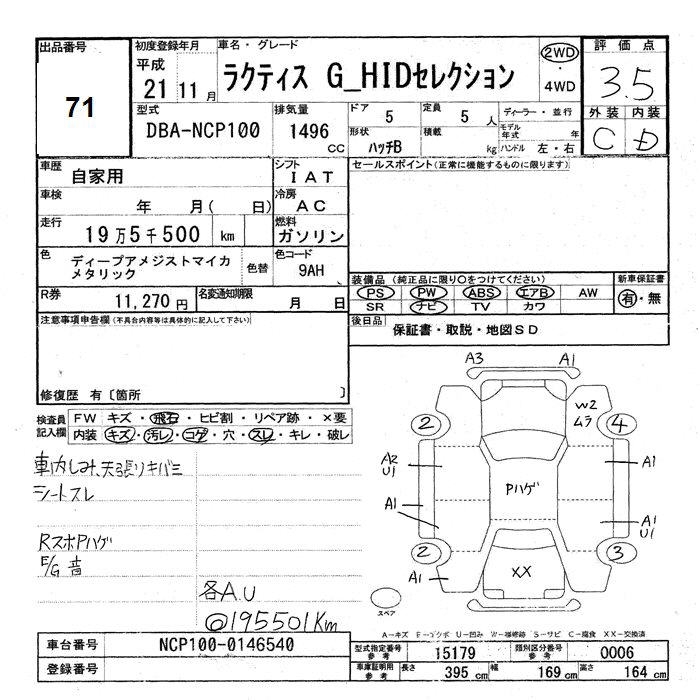 出品番号 初度登録年月 車名・グレード 評価点
71
平成 21 11 月 ラクティス G_HIDセレクション 2WD ・ 4WD 3.5
型式 排気量 ドア 5 定員 5 人 ディーラー・並行 外装 内装
DBA-NCP100 1496 CC 形状 ハッチB 積載 kg モデル年式 年 ハンドル 左・右 C D
車歴 自家用 シフト IAT セールスポイント(正常に機能するものに限ります)
車検 年 月( 日) 冷房 AC
走行 19万5千500 km 燃料 ガソリン
色 ディープアメジストマイカメタリック 色替 色コード 9AH
装備品(純正品に限り○をつけてください) 新車保証書
PS PW ABS エアB AW 有・無
SR ナビ TV カワ
R券 11,270円 名変通知期限 月 日
後日品 保証書・取説・地図SD
注意事項申告欄(不具合内容等は具体的に記入して下さい)
修復歴 有〔箇所 〕
検査員記入欄 FW キズ・飛石・ヒビ割・リペア跡・×要
内装 キズ・汚レ・コゲ・穴・スレ・キレ・破レ
車内しみ、天張りキバミ
シートスレ
RスポPハゲ
E/G 音
各A.U
@195501Km
A3 A1
2 W2 ムラ 4
A2 U1 A1
Pハゲ
A1 A1 U1
2 3
A1 XX
スペア
A-キズ E-エクボ U-凹み W-補修跡 S-サビ C-腐食 XX-交換済
車台番号 NCP100-0146540 型式指定番号 参考 15179 類別区分番号 参考 0006
登録番号 車庫証明用 参考 長さ 395 cm 幅 169 cm 高さ 164 cm